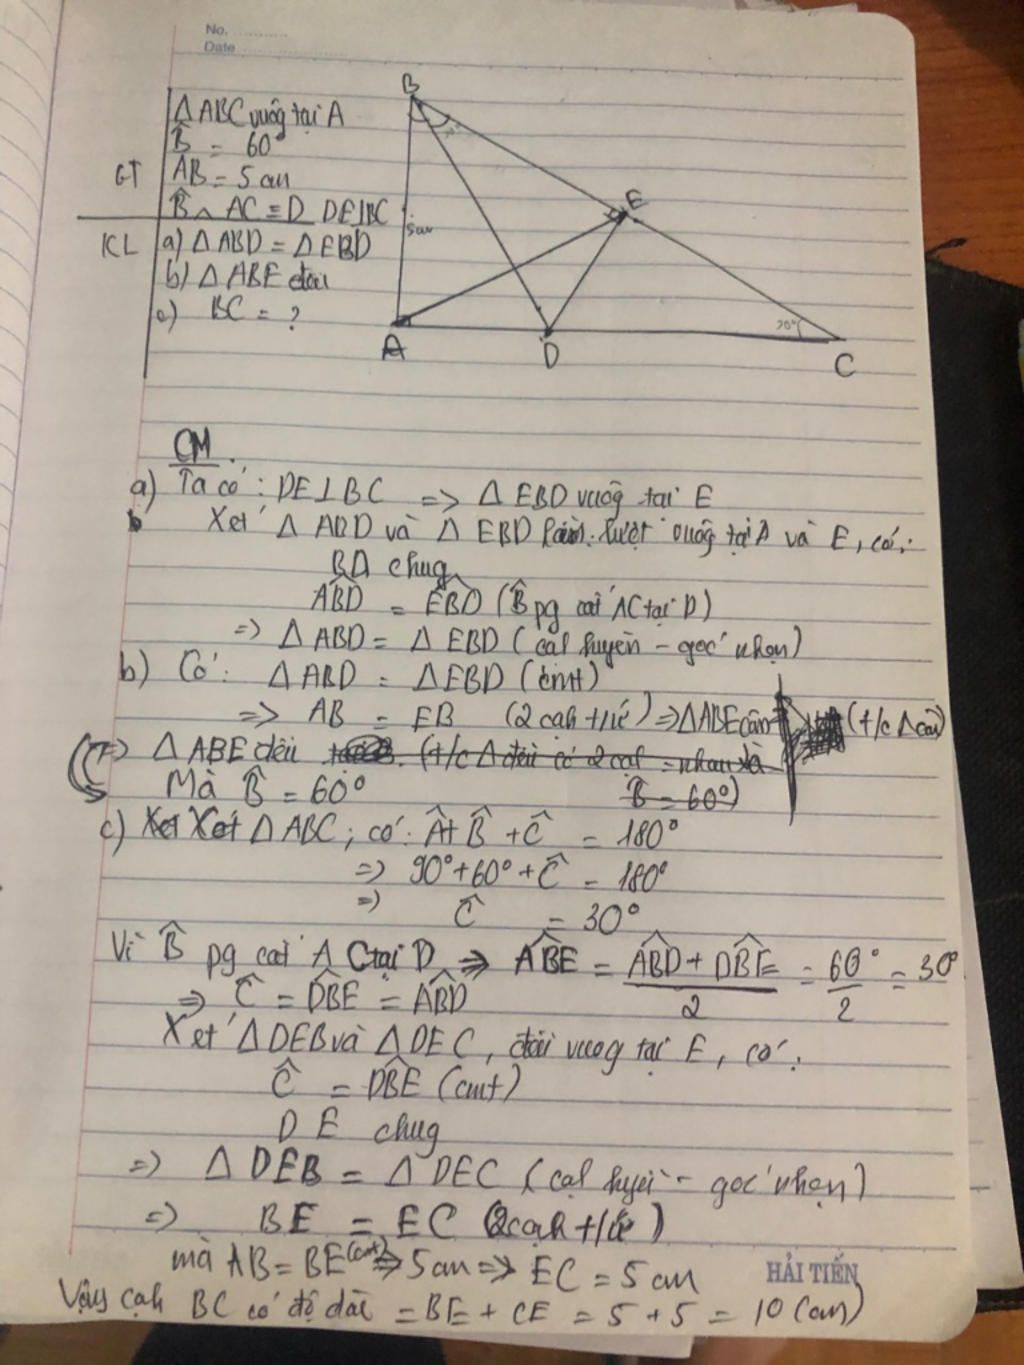 No. ............
Date ............
Δ ABC vuông tại A
B̂ = 60°
GT AB = 5 cm
B̂ ∩ AC ≡ D DE⊥BC
KL a) Δ ABD = Δ EBD
b) Δ ABE đều
c) BC = ?
B
E
5cm
A
D
C
CM.
a) Ta có: DE⊥BC => Δ EBD vuôg tại E
Xét Δ ABD và Δ EBD lần lượt vuôg tại A và E, có:
BD chug
ABD = EBD (B̂ pg cắt AC tại D)
=> Δ ABD = Δ EBD (cạh huyền - góc nhọn)
b) Có: Δ ABD = Δ EBD (cmt)
=> AB = EB (2 cạh t/ứ) => Δ ABE cân (t/c Δ cân)
=> Δ ABE đều (t/c Δ đều có 2 cạh = nhau và
Mà B̂ = 60° B̂ = 60°)
c) Xét Xét Δ ABC, có: Â + B̂ + Ĉ = 180°
=> 90° + 60° + Ĉ = 180°
=> Ĉ = 30°
Vì B̂ pg cắt AC tại D => ABE = ABD + DBE / 2 = 60° / 2 = 30°
=> Ĉ = DBE = ABD
Xét Δ DEB và Δ DEC, đều vuog tại E, có:
Ĉ = DBE (cmt)
DE chug
=> Δ DEB = Δ DEC (cạh huyền - góc nhọn)
=> BE = EC (2 cạh t/ứ)
mà AB = BE (cmt) => 5 cm => EC = 5 cm
HẢI TIẾN
Vậy cạh BC có độ dài = BE + CE = 5 + 5 = 10 (cm)